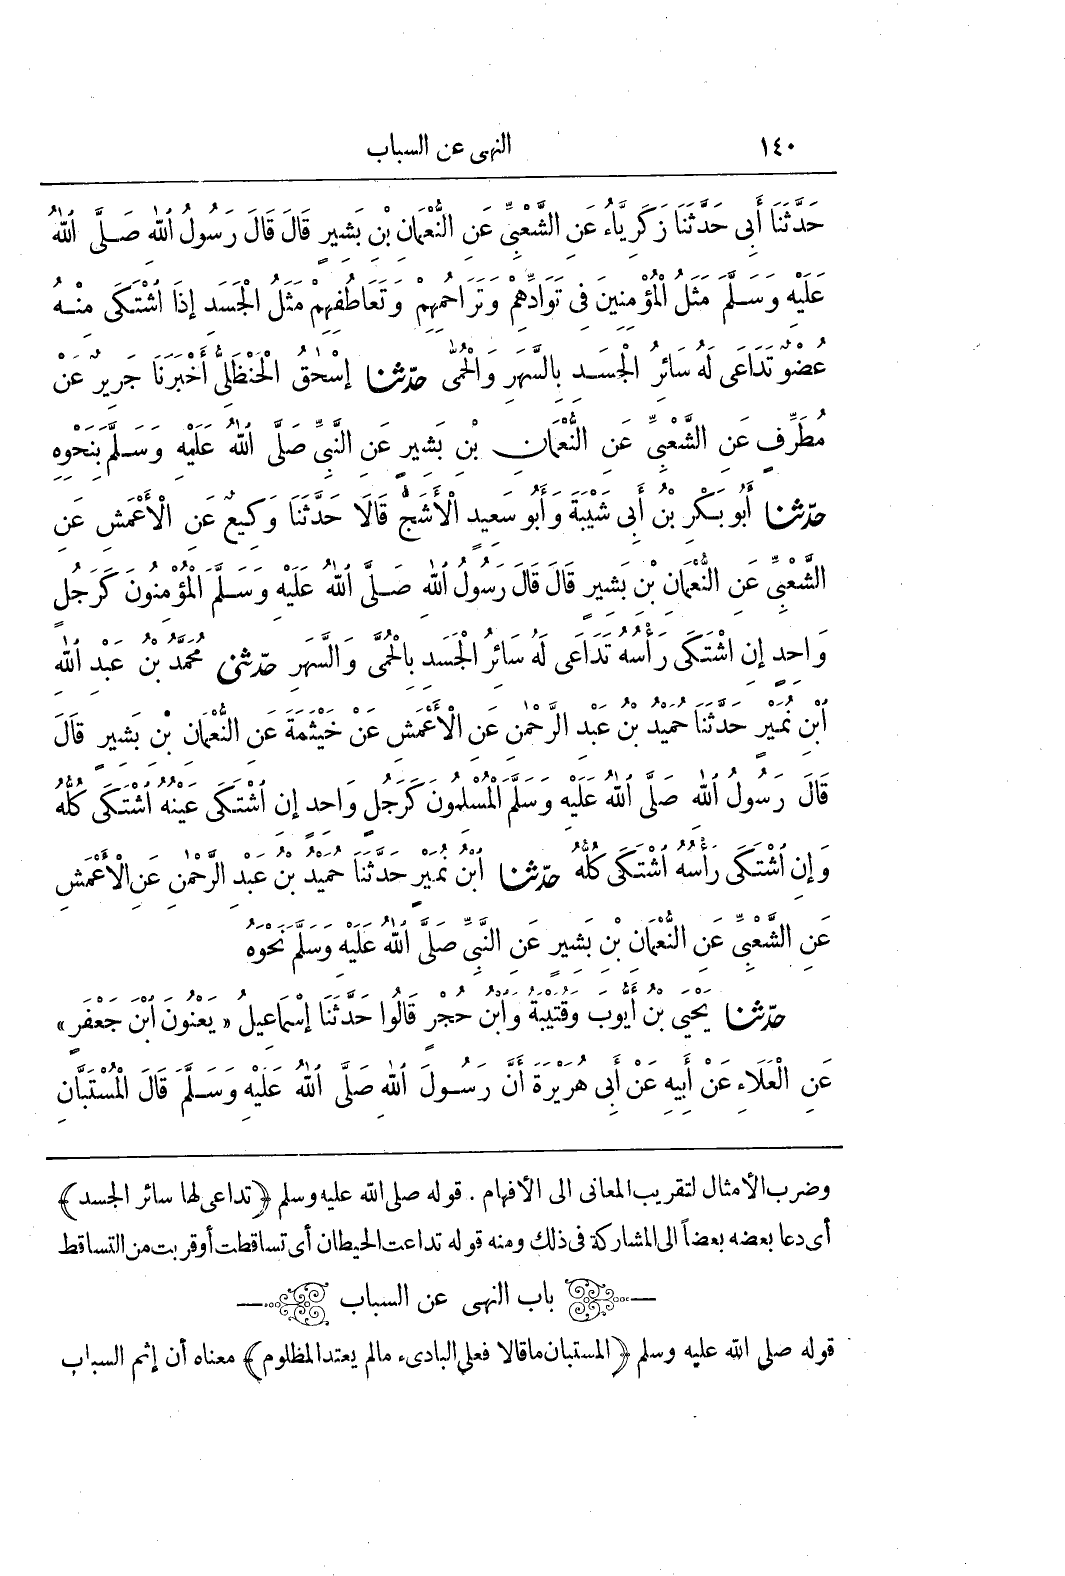 ١٤٠ النهى عن السباب
حَدَّثَنَا أَبِى حَدَّثَنَا زَكَرِيَّاءُ عَنِ الشَّعْبِىِّ عَنِ النُّعْمَانِ بْنِ بَشِيرٍ قَالَ قَالَ رَسُولُ اللهِ صَلَّى اللهُ
عَلَيْهِ وَسَلَّمَ مَثَلُ الْمُؤْمِنِينَ فِى تَوَادِّهِمْ وَتَرَاحُمِهِمْ وَتَعَاطُفِهِمْ مَثَلُ الْجَسَدِ إِذَا اشْتَكَى مِنْهُ
عُضْوٌ تَدَاعَى لَهُ سَائِرُ الْجَسَدِ بِالسَّهَرِ وَالْحُمَّى حدّثنا إِسْحٰقُ الْحَنْظَلِىُّ أَخْبَرَنَا جَرِيرٌ عَنْ
مُطَرِّفٍ عَنِ الشَّعْبِىِّ عَنِ النُّعْمَانِ بْنِ بَشِيرٍ عَنِ النَّبِىِّ صَلَّى اللهُ عَلَيْهِ وَسَلَّمَ بِنَحْوِهِ
حدّثنا أَبُو بَكْرِ بْنُ أَبِى شَيْبَةَ وَأَبُو سَعِيدٍ الْأَشَجُّ قَالَا حَدَّثَنَا وَكِيعٌ عَنِ الْأَعْمَشِ عَنِ
الشَّعْبِىِّ عَنِ النُّعْمَانِ بْنِ بَشِيرٍ قَالَ قَالَ رَسُولُ اللهِ صَلَّى اللهُ عَلَيْهِ وَسَلَّمَ الْمُؤْمِنُونَ كَرَجُلٍ
وَاحِدٍ إِنِ اشْتَكَى رَأْسُهُ تَدَاعَى لَهُ سَائِرُ الْجَسَدِ بِالْحُمَّى وَالسَّهَرِ حدّثنى مُحَمَّدُ بْنُ عَبْدِ اللهِ
ابْنِ نُمَيْرٍ حَدَّثَنَا حُمَيْدُ بْنُ عَبْدِ الرَّحْمٰنِ عَنِ الْأَعْمَشِ عَنْ خَيْثَمَةَ عَنِ النُّعْمَانِ بْنِ بَشِيرٍ قَالَ
قَالَ رَسُولُ اللهِ صَلَّى اللهُ عَلَيْهِ وَسَلَّمَ الْمُسْلِمُونَ كَرَجُلٍ وَاحِدٍ إِنِ اشْتَكَى عَيْنُهُ اشْتَكَى كُلُّهُ
وَإِنِ اشْتَكَى رَأْسُهُ اشْتَكَى كُلُّهُ حدّثنا ابْنُ نُمَيْرٍ حَدَّثَنَا حُمَيْدُ بْنُ عَبْدِ الرَّحْمٰنِ عَنِ الْأَعْمَشِ
عَنِ الشَّعْبِىِّ عَنِ النُّعْمَانِ بْنِ بَشِيرٍ عَنِ النَّبِىِّ صَلَّى اللهُ عَلَيْهِ وَسَلَّمَ نَحْوَهُ
حدّثنا يَحْيَى بْنُ أَيُّوبَ وَقُتَيْبَةُ وَابْنُ حُجْرٍ قَالُوا حَدَّثَنَا إِسْمَاعِيلُ «يَعْنُونَ ابْنَ جَعْفَرٍ»
عَنِ الْعَلَاءِ عَنْ أَبِيهِ عَنْ أَبِى هُرَيْرَةَ أَنَّ رَسُولَ اللهِ صَلَّى اللهُ عَلَيْهِ وَسَلَّمَ قَالَ الْمُسْتَبَّانِ
وضرب الأمثال لتقريب المعانى الى الأفهام . قوله صلى الله عليه وسلم ﴿تداعى لها سائر الجسد﴾
أى دعا بعضه بعضاً الى المشاركة فى ذلك ومنه قوله تداعت الحيطان أى تساقطت أو قربت من التساقط
باب النهى عن السباب
قوله صلى الله عليه وسلم ﴿المستبان ماقالا فعلى البادىء مالم يعتد المظلوم﴾ معناه أن إثم السباب